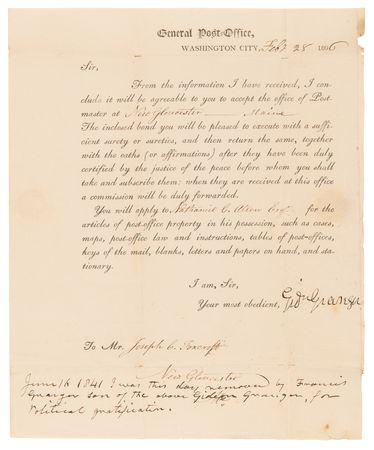 General Post-Office,
WASHINGTON CITY, Feby 28 1806
Sir,
From the information I have received, I con-
clude it will be agreeable to you to accept the office of Post-
master at New Gloucester Maine
The inclosed bond you will be pleased to execute with a suffi-
cient surety or sureties, and then return the same, together
with the oaths (or affirmations) after they have been duly
certified by the justice of the peace before whom you shall
take and subscribe them: when they are received at this office
a commission will be duly forwarded.
You will apply to Nathaniel C. Esqr for the
articles of post-office property in his possession, such as cases,
maps, post-office law and instructions, tables of post-offices,
keys of the mail, blanks, letters and papers on hand, and sta-
tionary.
I am, Sir,
Your most obedient, Gidn Granger
To Mr. Joseph C. Foxcroft
New Gloucester
June 16 1841 I was this day removed by Francis
Granger son of the above Gideon Granger, for
Political gratification.